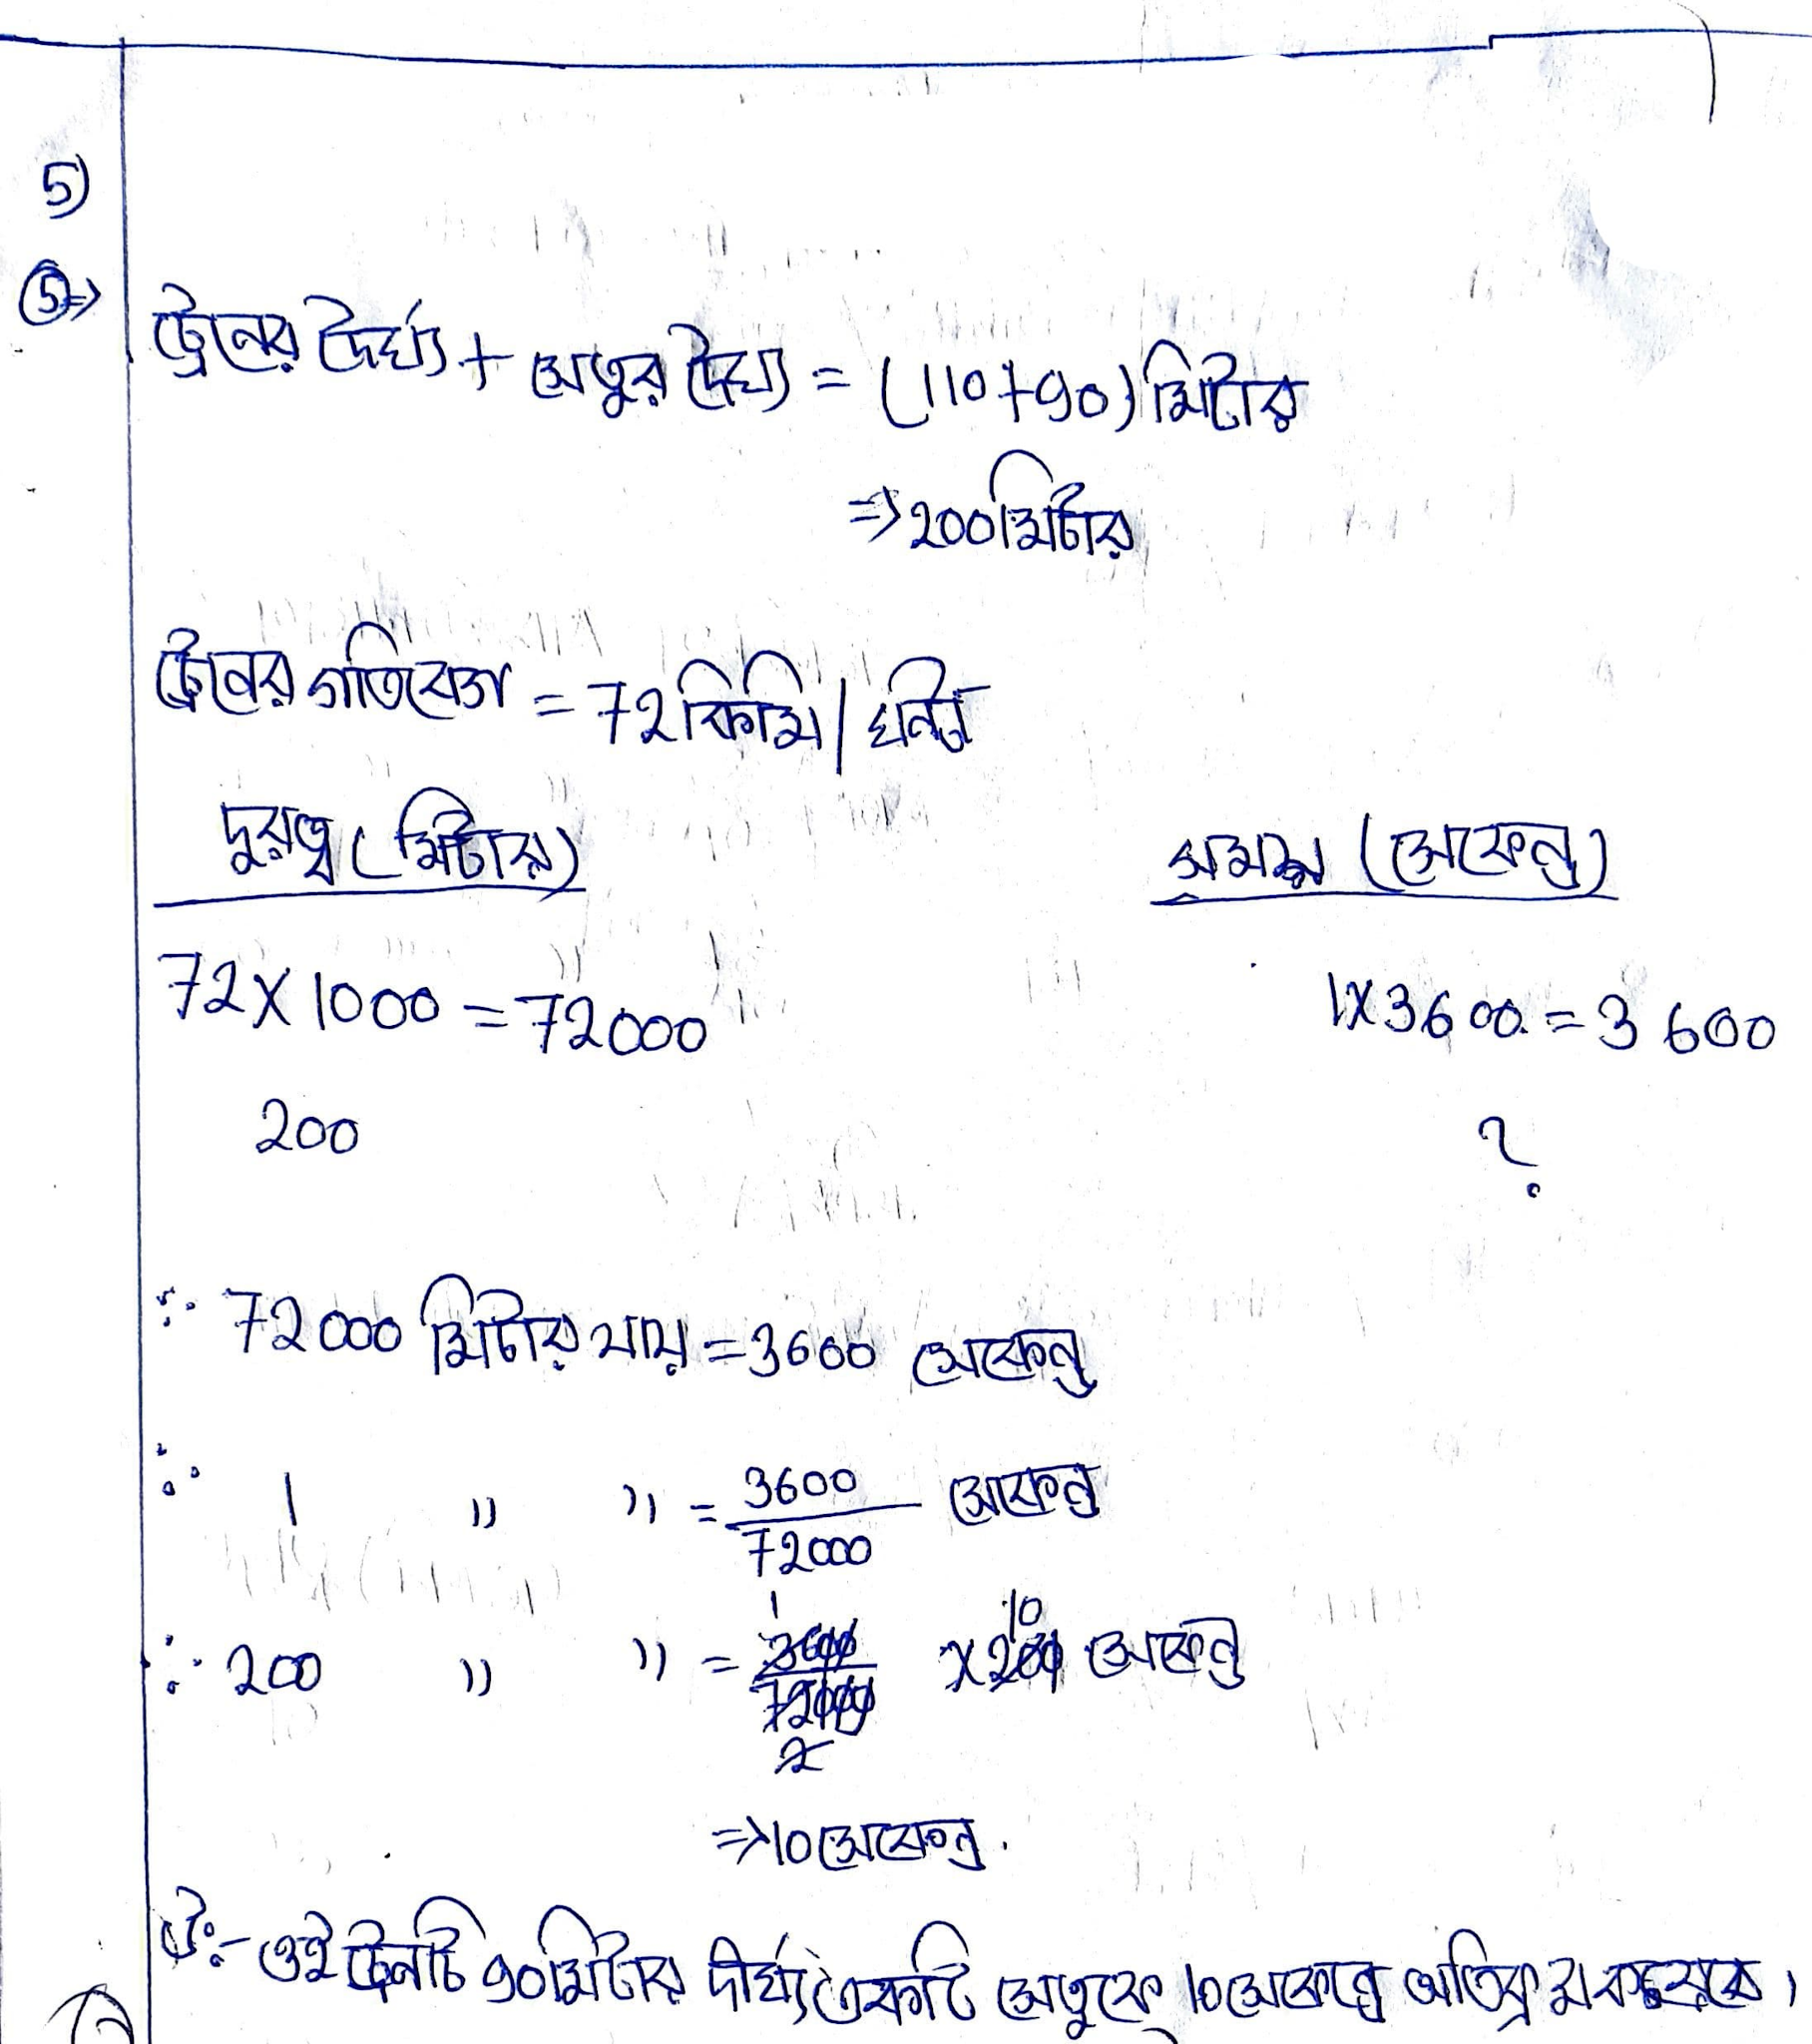 5)
5⇒
ট্রেনের দৈর্ঘ্য + সেতুর দৈর্ঘ্য = (110+90) মিটার
⇒ 200 মিটার
ট্রেনের গতিবেগ = 72 কিমি/ঘন্টা
দুরত্ব (মিটার) সময় (সেকেন্ড)
72 × 1000 = 72000 1×3600 = 3600
200 ?
∵ 72000 মিটার যায় = 3600 সেকেন্ড
∴ 1 " " = 3600/72000 সেকেন্ড
∴ 200 " " = 3600/72000 × 200 সেকেন্ড
1 10
2
⇒ 10 সেকেন্ড.
উঃ- ওই ট্রেনটি 90 মিটার দীর্ঘ্য একটি সেতুকে 10 সেকেন্ডে অতিক্রম করবে।